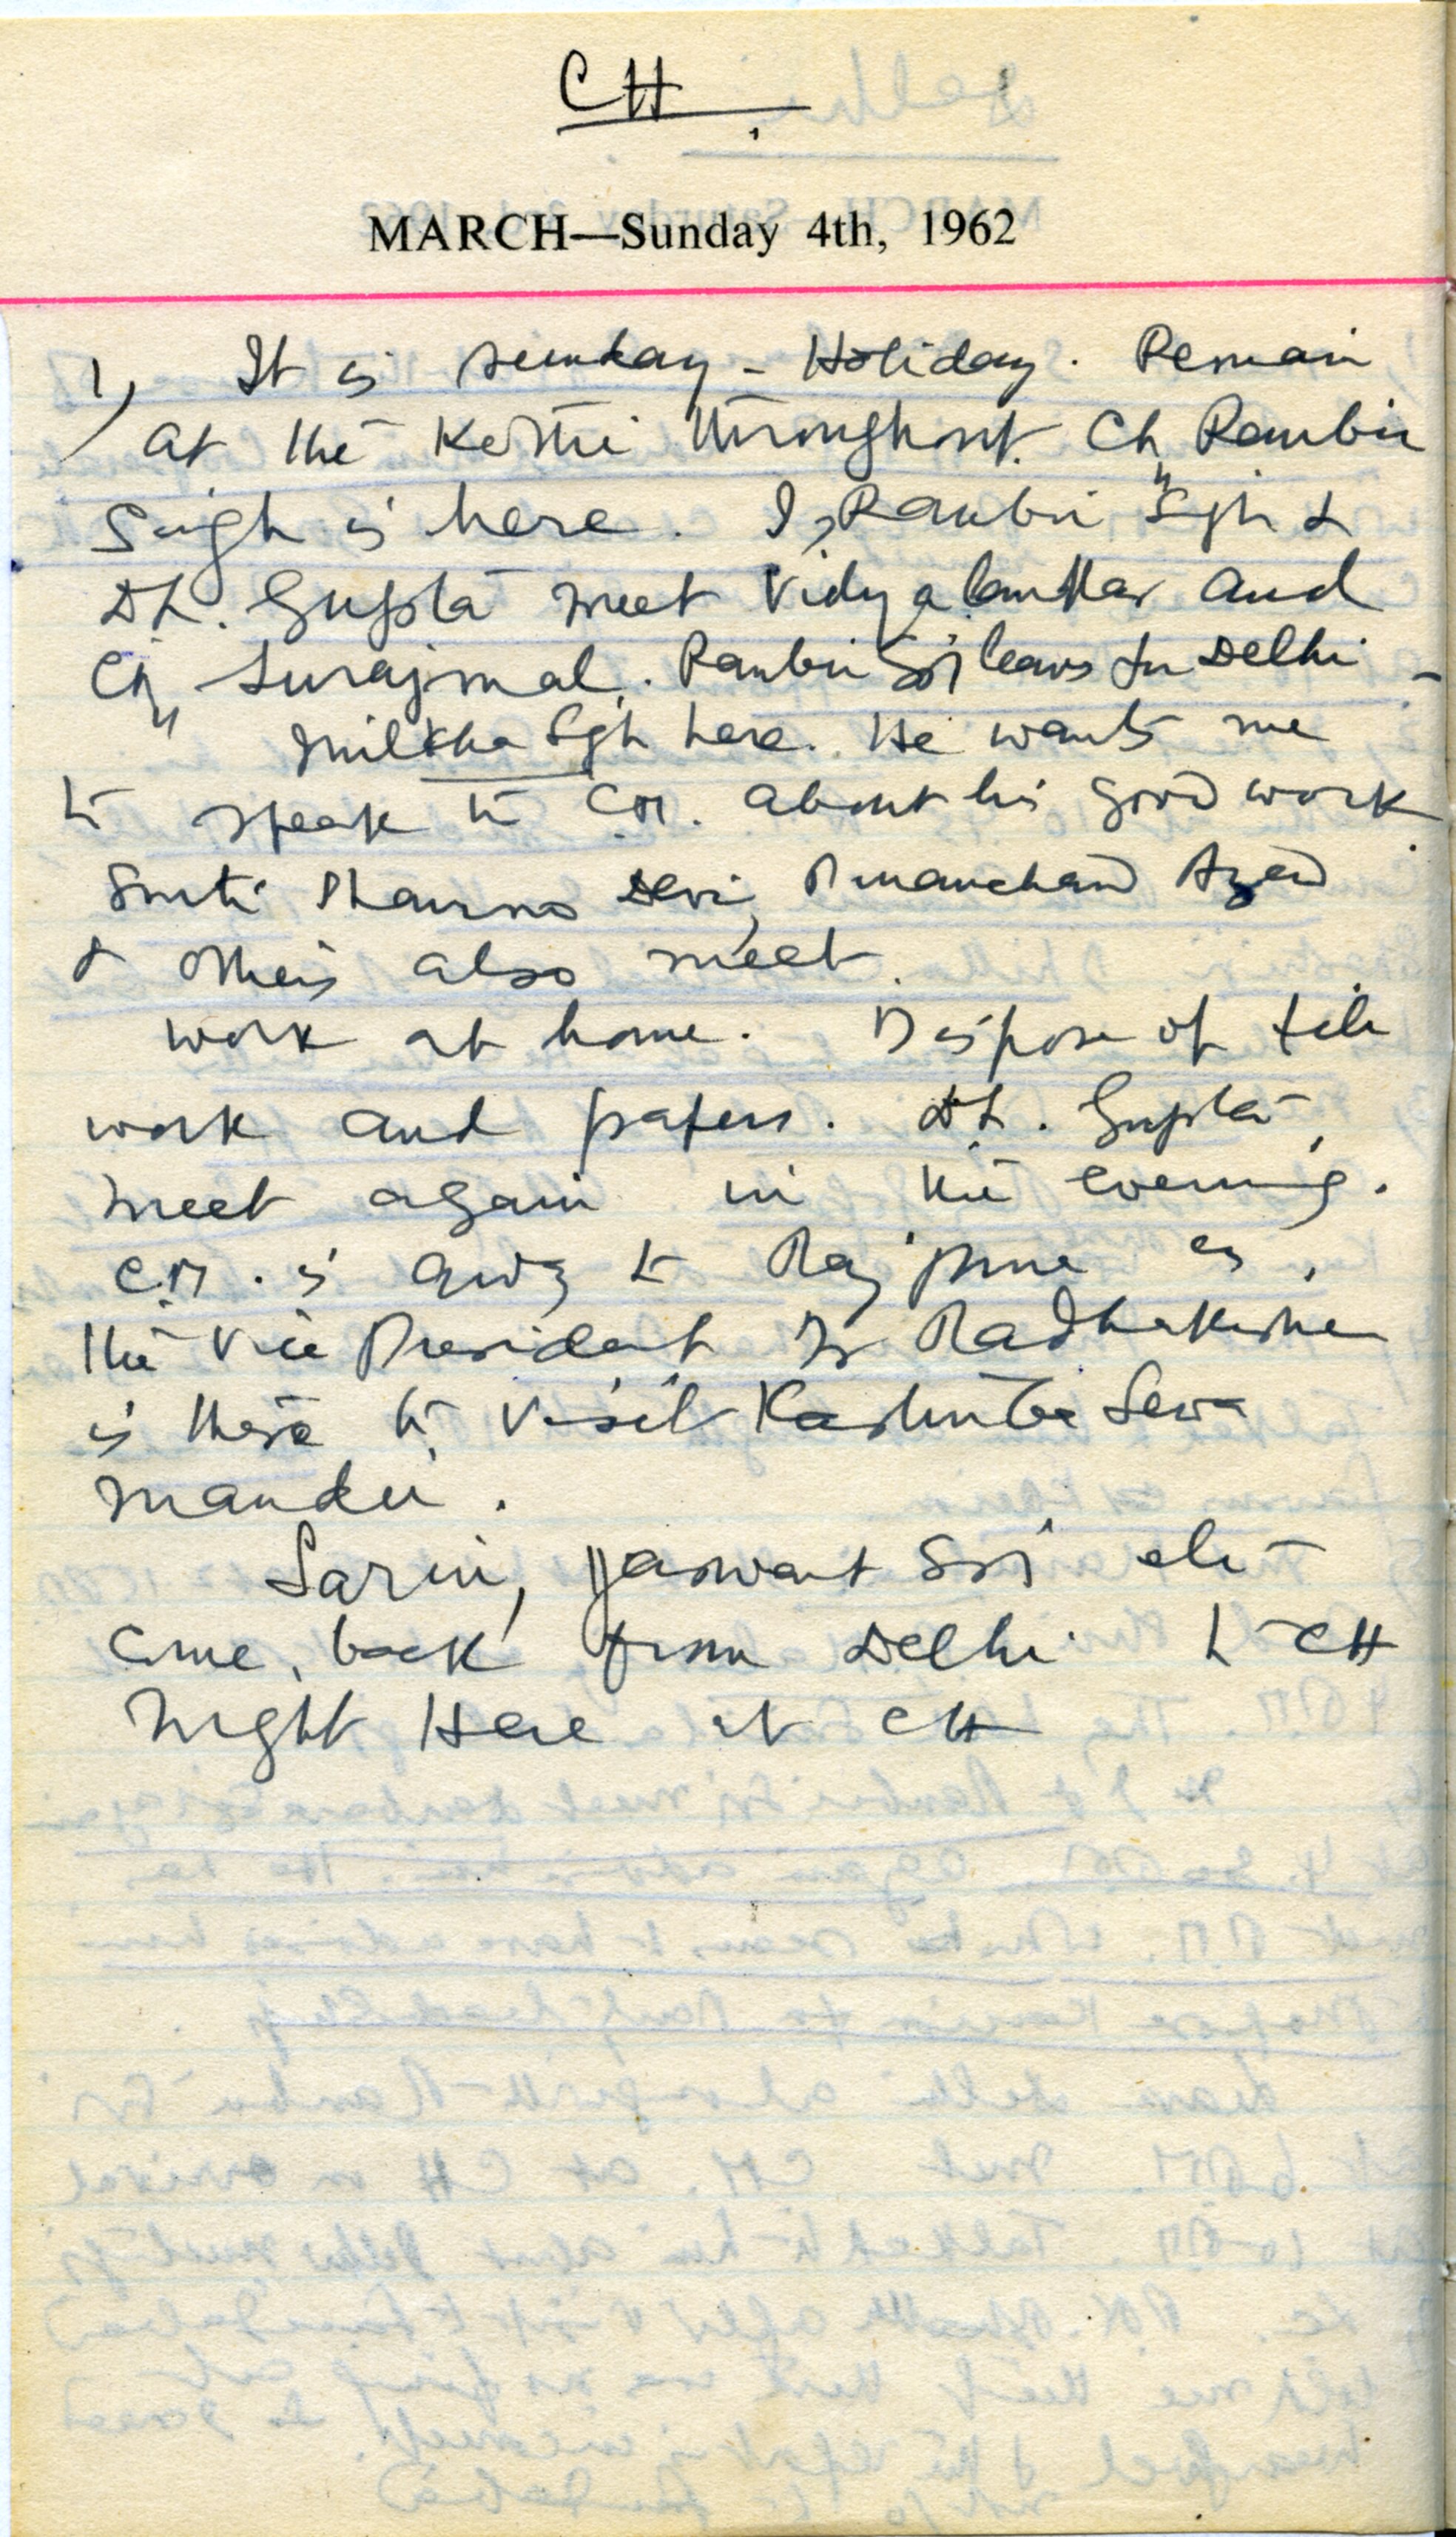 CH.
MARCH—Sunday 4th, 1962
1) It is sunday - Holiday. Remain
at the Kothi throughout. Ch Ranbir
Singh is here. I, Ranbir Sgh &
DL. Gupta meet Vidyalankar and
Ch Surajmal. Ranbir leaves for Delhi -
Milkha Sgh here. He wants me
to speak to CM. about his good work
Smti Devi, Azad
& others also meet.
work at home. Dispose of file
work and papers. DL. Gupta
meet again in the evening.
C.M. is away to Rajpura as
the Vice President Dr Radhakishen
is there to visit Kasturba Sewa
mandir.
Sarin, Jaswant etc
come back from Delhi to CH
Night Here at CH